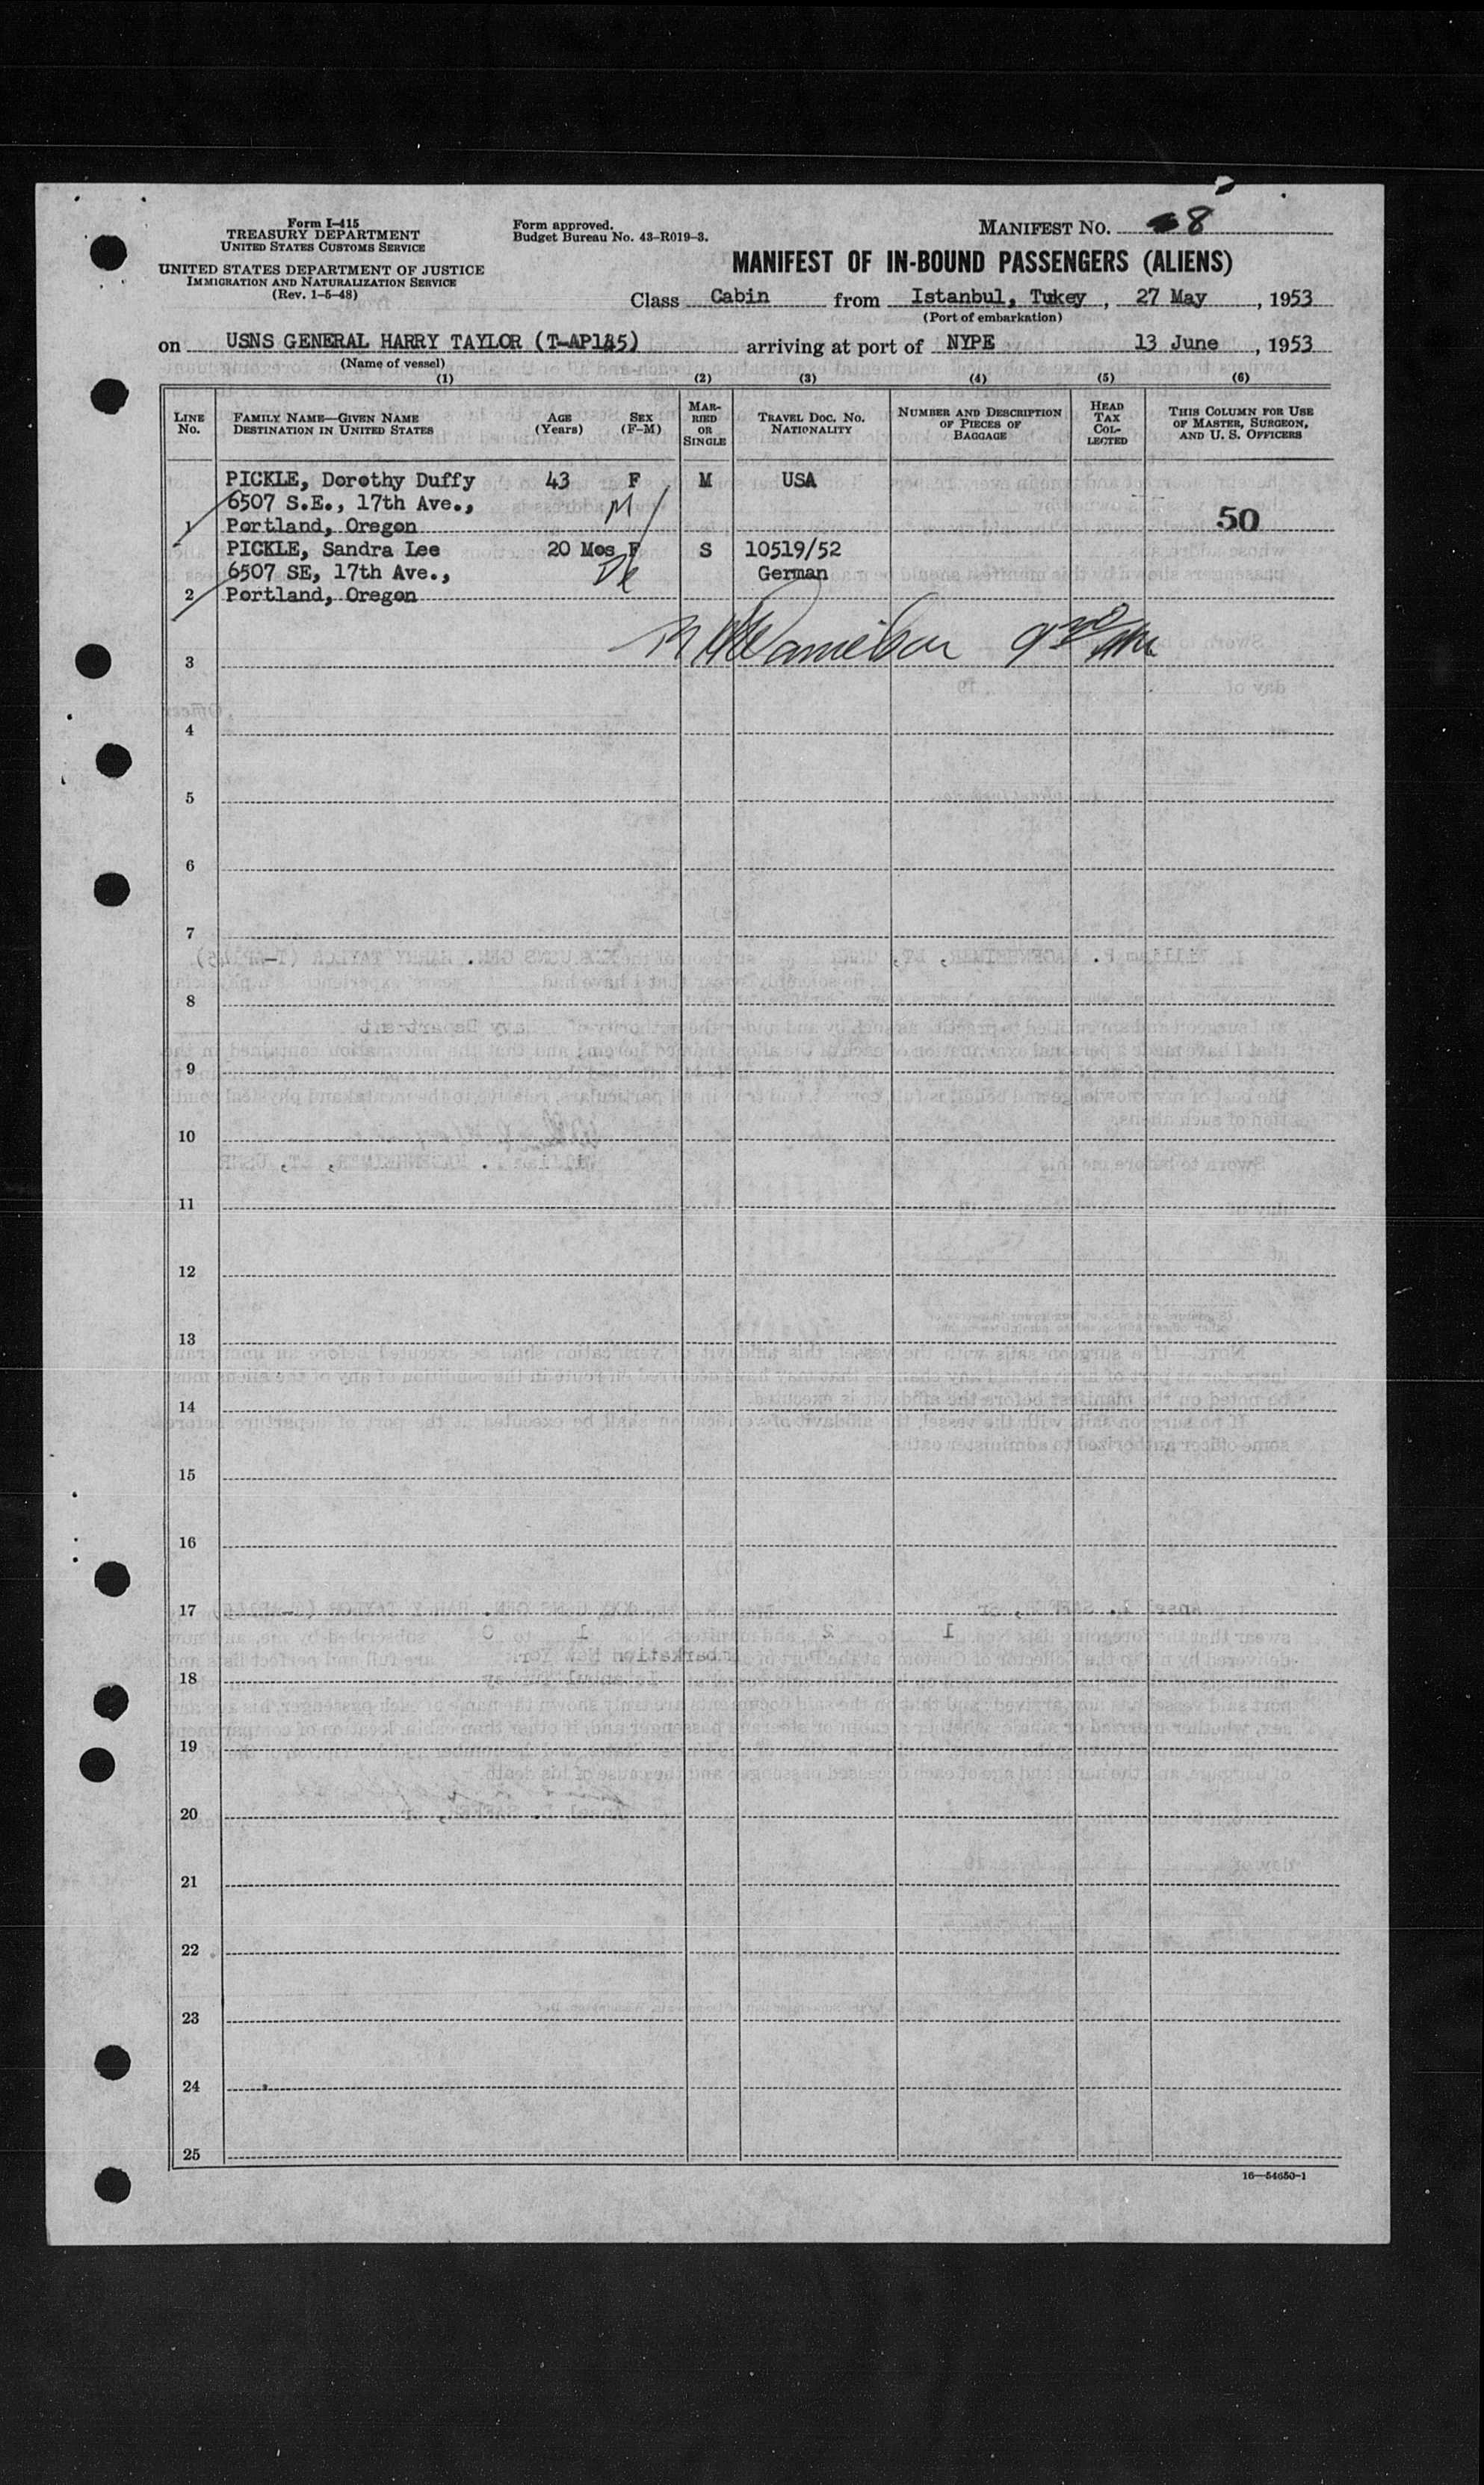 Form I-415
TREASURY DEPARTMENT
UNITED STATES CUSTOMS SERVICE
UNITED STATES DEPARTMENT OF JUSTICE
IMMIGRATION AND NATURALIZATION SERVICE
(Rev. 1-5-48)
Form approved.
Budget Bureau No. 43-R019-3.
MANIFEST NO. 8
MANIFEST OF IN-BOUND PASSENGERS (ALIENS)
Class Cabin from Istanbul, Tukey, 27 May, 1953
(Port of embarkation)
on USNS GENERAL HARRY TAYLOR (T-AP145) arriving at port of NYPE 13 June, 1953
(Name of vessel)
(1) (2) (3) (4) (5) (6)
LINE NO.
FAMILY NAME—GIVEN NAME
DESTINATION IN UNITED STATES
AGE (Years)
SEX (F-M)
MARRIED OR SINGLE
TRAVEL DOC. NO.
NATIONALITY
NUMBER AND DESCRIPTION OF PIECES OF BAGGAGE
HEAD TAX COLLECTED
THIS COLUMN FOR USE OF MASTER, SURGEON, AND U. S. OFFICERS
PICKLE, Dorothy Duffy 43 F M USA
6507 S.E., 17th Ave.,
1 Portland, Oregon 50
PICKLE, Sandra Lee 20 Mos F S 10519/52
6507 SE, 17th Ave., German
2 Portland, Oregon
3
4
5
6
7
8
9
10
11
12
13
14
15
16
17
18
19
20
21
22
23
24
25
16—54650-1